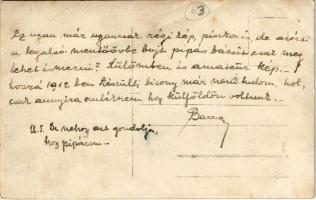 63
Ez ugyan már ugyancsak régi kép, piszkos is, de azért
a legalsó mentőövbe bujt pipás bácsit csak meg
lehet ismerni? Különben is amatőr kép. –
hozzá 1912 ben készült, bizony már nem tudom, hol,
csak annyira emlékszem hogy külföldön voltunk. –
U.I. De nehogy azt gondolja,
hogy pipázom. –